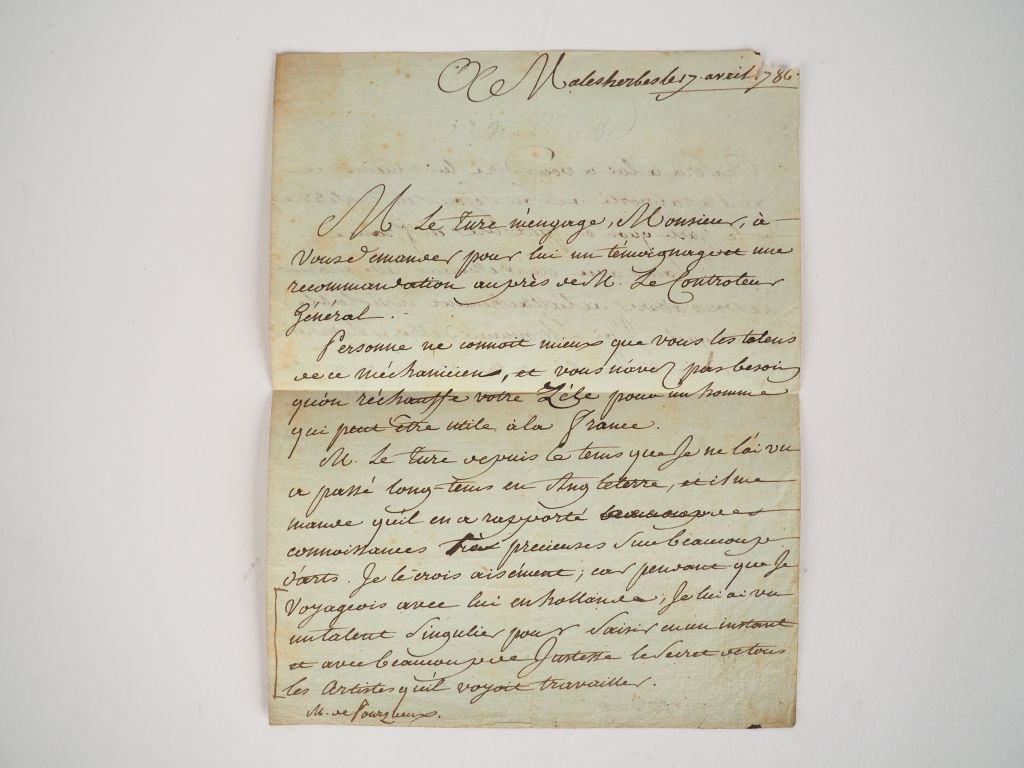 A Malesherbes le 17 avril 1786.
M. Le Turc m'engage, Monsieur, à
vous demander pour lui un témoignage et une
recommandation auprès de M. Le Controleur
Général.
Personne ne connoit mieux que vous les talens
de ce méchanicien, et vous n'avez pas besoin
qu'on réchauffe votre Zèle pour un homme
qui peut être utile à la France.
M. Le Turc depuis le tems que Je ne l'ai vu
a passé long-tems en Angleterre, et il me
mande qu'il en a rapporté beaucoup de
connoissances très precieuses sur beaucoup
d'arts. Je le crois aisément; car pendant que Je
voyageois avec lui en hollande, Je lui ai vu
un talent singulier pour saisir en un instant
et avec beaucoup de Justesse le secret de tous
les Artistes qu'il voyoit travailler.
M. de